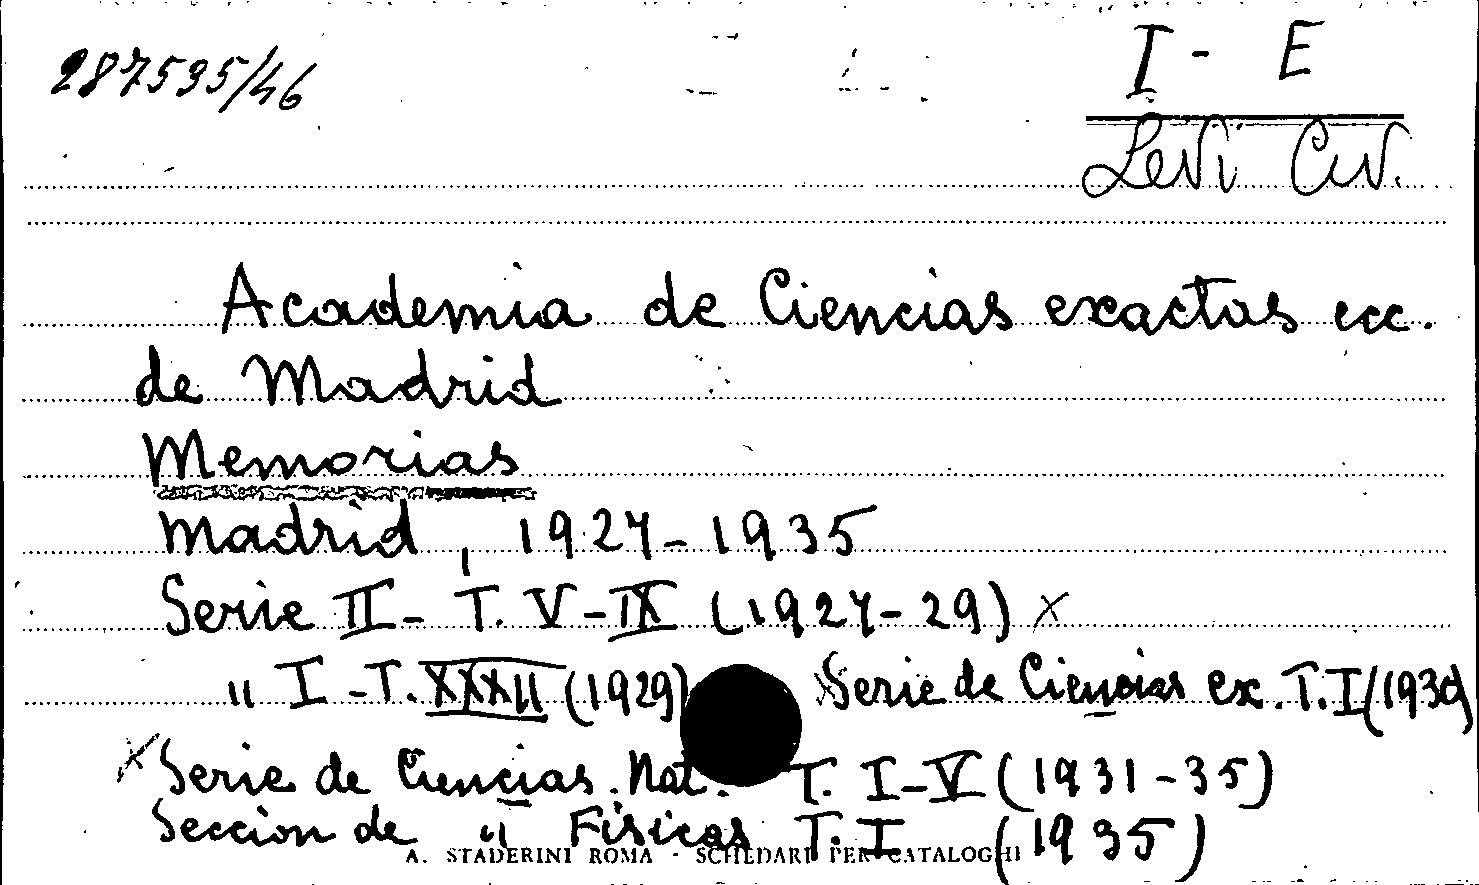 287595/46
I - E
Levi Civ.
Academia de Ciencias exactas ecc.
de Madrid
Memorias
Madrid, 1927-1935
Serie II - T. V-IX (1927-29) x
" I - T. XXXII (1929) x Serie de Ciencias ex. T. I (1930)
x Serie de Ciencias Nat. T. I-V (1931-35)
Seccion de " Fisicas T. I (1935)
A. STADERINI ROMA - SCHEDARI PER CATALOGHI